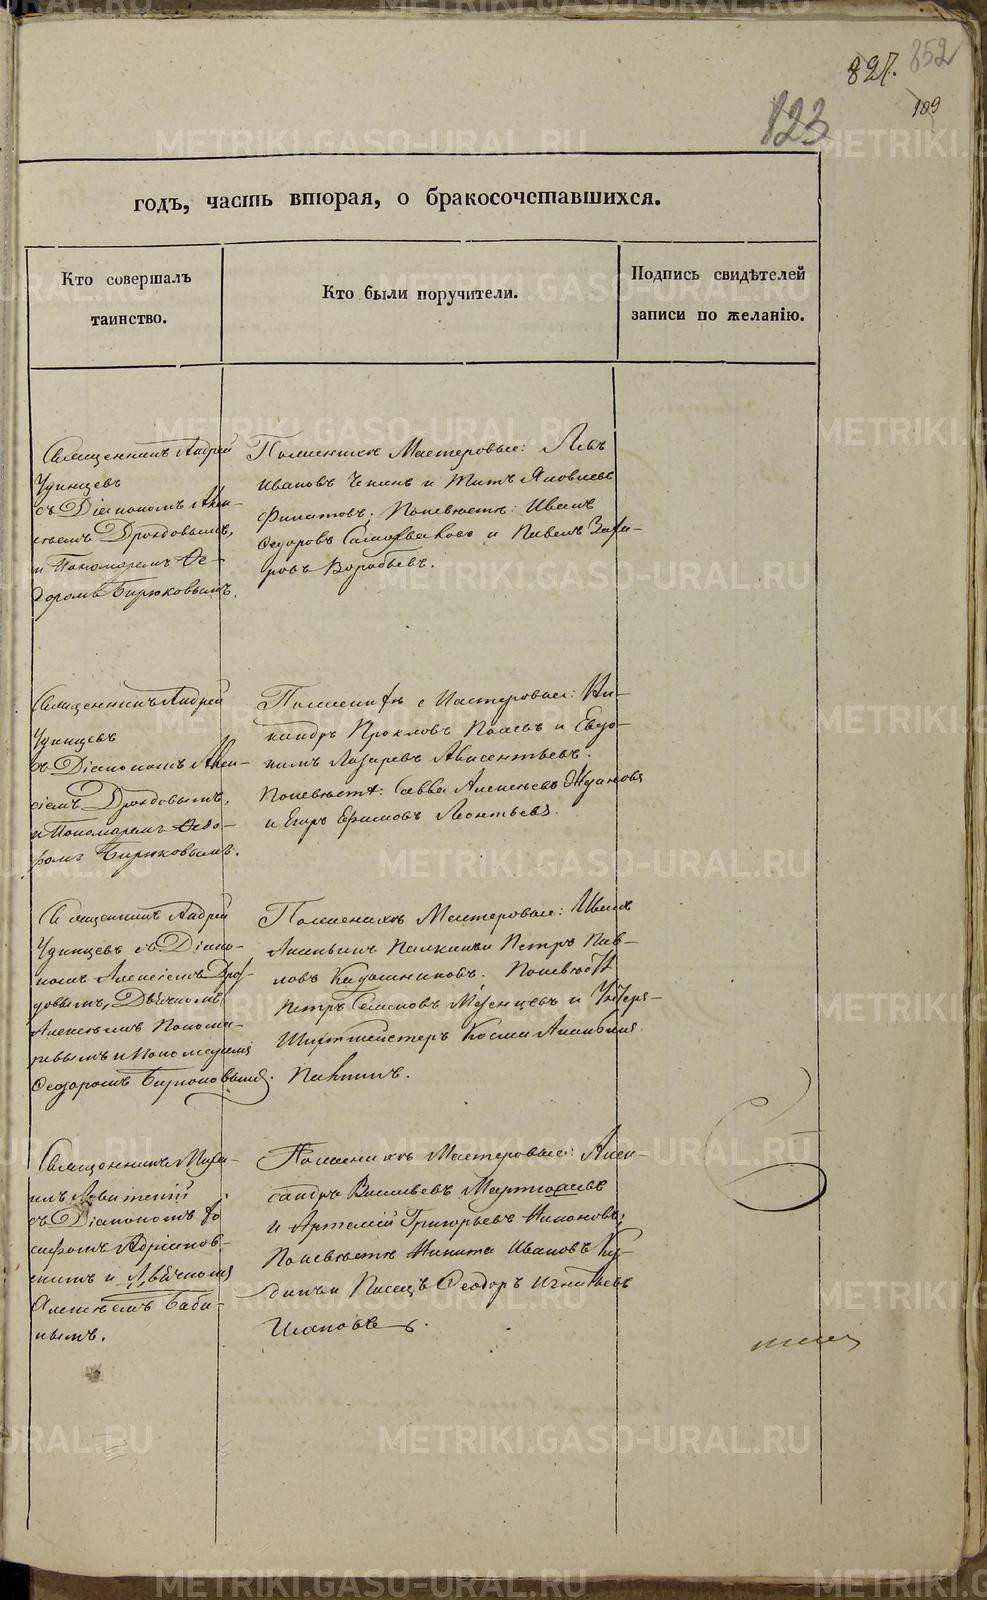 827. 852
123
109
годъ, часть вторая, о бракосочетавшихся.
Кто совершалъ
таинство.
Кто были поручители.
Подпись свидѣтелей
записи по желанію.
Священникъ Андрей
Удинцевъ
съ Діакономъ Алек-
сѣемъ Дроздовымъ,
и Пономаремъ Ѳе-
доромъ Бирюковымъ.
По женихѣ Мастеровые: Левъ
Ивановъ и Титъ Яковлевъ
Филатовъ; По невѣстѣ: Иванъ
Ѳедоровъ и Павелъ Заха-
ровъ Воробьевъ.
Священникъ Андрей
Удинцевъ
съ Діакономъ Алек-
сіемъ Дроздовымъ,
и Пономаремъ Ѳедо-
ромъ Бирюковымъ.
По женихѣ Мастеровые: Ни-
кандръ Прокловъ и Евдо-
кимъ Лазаревъ Авксентьевъ;
По невѣстѣ: Савва Алексѣевъ Ждановъ
и Егоръ Ефимовъ Леонтьевъ.
Священникъ Андрей
Удинцевъ съ Діако-
номъ Алексіемъ Дроз-
довымъ, Дьячкомъ
Алексѣемъ Понома-
ревымъ и Пономаремъ
Ѳеодоромъ Бирюковымъ.
По женихѣ Мастеровые: Иванъ
Ананьинъ и Петръ Пав-
ловъ Кадошниковъ; По невѣстѣ
Петръ Семеновъ Мезенцевъ и Унтеръ-
Шихтмейстеръ Косма Ананьинъ
Священникъ Миха-
илъ Левитскій
съ Діакономъ Іо
сифомъ Адріанов-
скимъ и Дьячкомъ
Алексѣемъ Баби-
нымъ.
По женихѣ Мастеровые: Алек-
сандръ Васильевъ Мартюшевъ
и Артемій Григорьевъ Никоновъ;
По невѣстѣ Никита Ивановъ Ку-
динъ и Писецъ Ѳеодоръ Игнатьевъ
METRIKI.GASO-URAL.RU